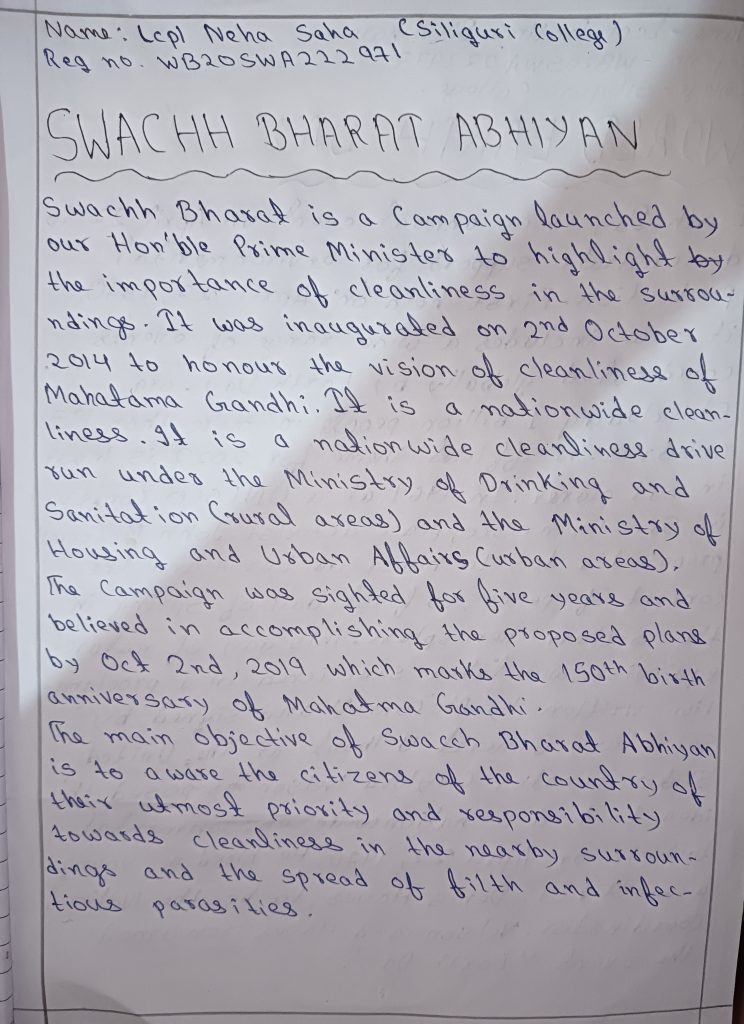 Name: Lcpl Neha Saha (Siliguri College)
Reg no. WB20SWA222971
SWACHH BHARAT ABHIYAN
Swachh Bharat is a Campaign launched by
our Hon'ble Prime Minister to highlight by
the importance of cleanliness in the surrou-
ndings. It was inaugurated on 2nd October
2014 to honour the vision of cleanliness of
Mahatama Gandhi. It is a nationwide clean-
liness. It is a nationwide cleanliness drive
run under the Ministry of Drinking and
Sanitation (rural areas) and the Ministry of
Housing and Urban Affairs (urban areas).
The Campaign was sighted for five years and
believed in accomplishing the proposed plans
by Oct 2nd, 2019 which marks the 150th birth
anniversary of Mahatma Gandhi.
The main objective of Swacch Bharat Abhiyan
is to aware the citizens of the country of
their utmost priority and responsibility
towards cleanliness in the nearby surroun-
dings and the spread of filth and infec-
tious parasities.